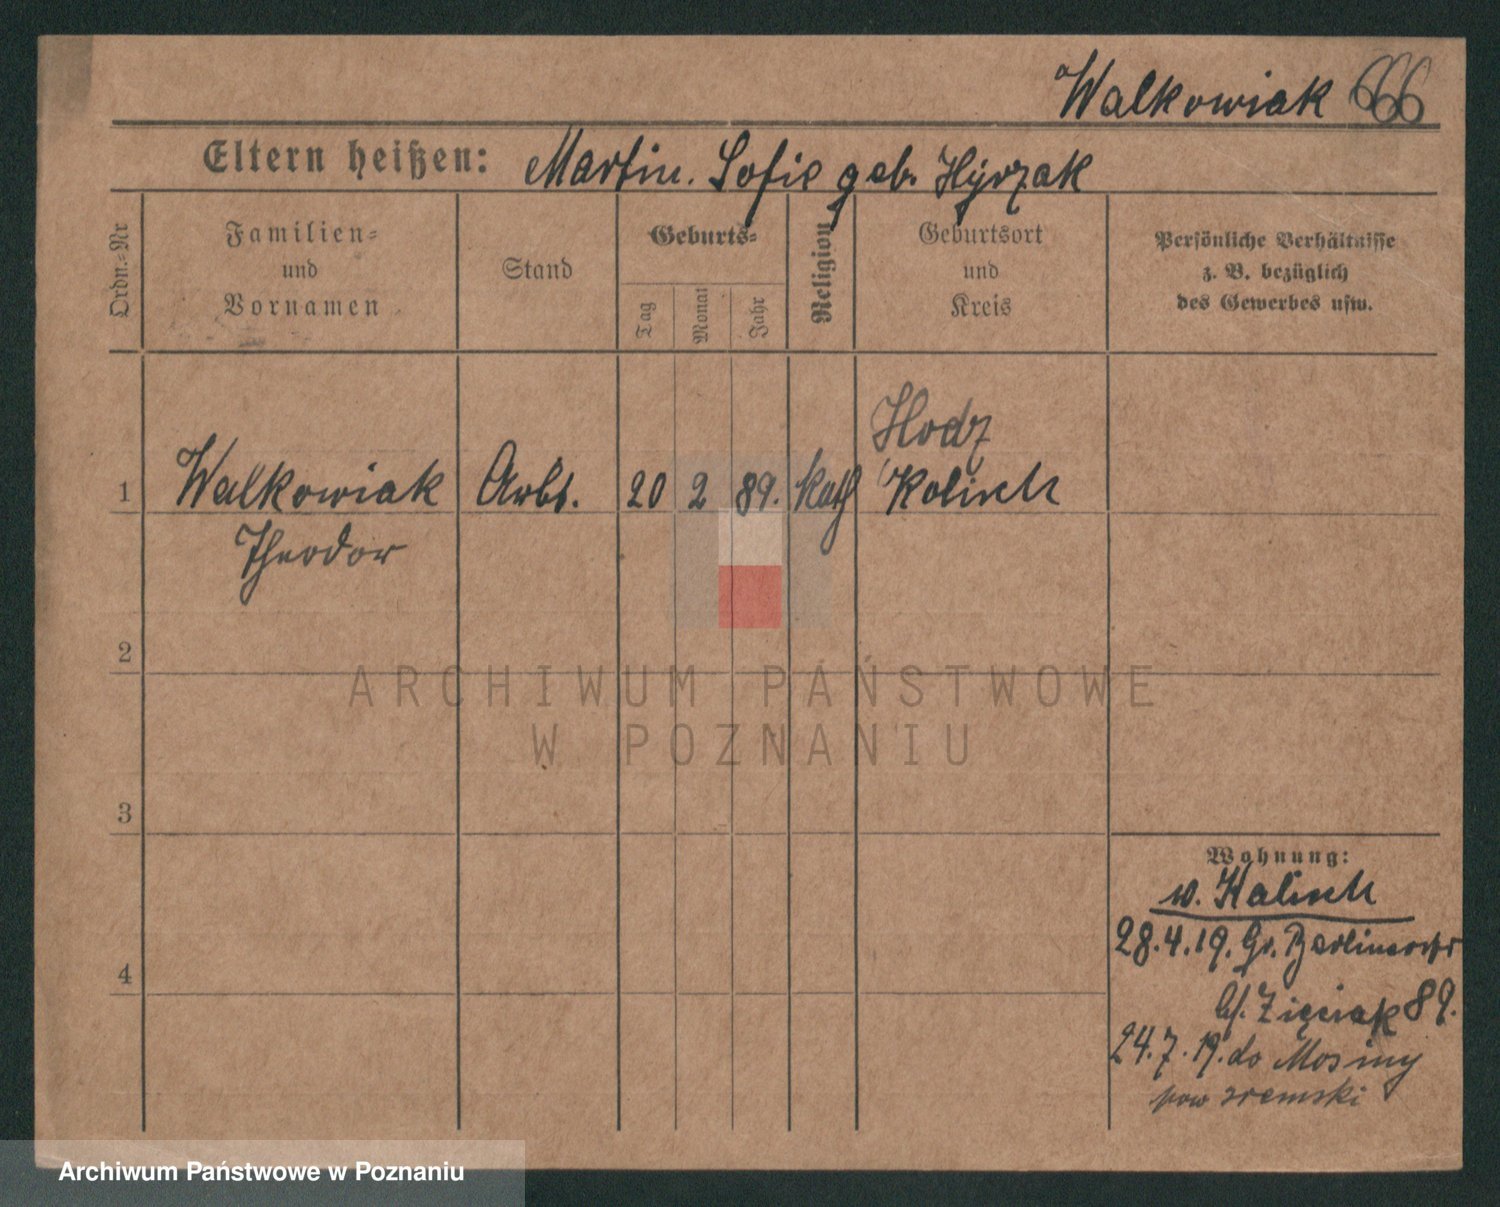 Walkowiak 666
Eltern heißen: Martin. Sofie geb. Hyrzak
Ordn.=Nr
Familien=
und
Vornamen
Stand
Geburts=
Tag
Monat
Jahr
Religion
Geburtsort
und
Kreis
Persönliche Verhältnisse
z. B. bezüglich
des Gewerbes usw.
1 Walkowiak Arbt. 20 2 89. kath Kolisch
Theodor
2
3
4
Wohnung:
v. Kalisch
28.4.19. Gr. Berlinerstr
bf. Zięciak 89.
24.7.19. do Mosiny
pow sremski
ARCHIWUM PAŃSTWOWE
W POZNANIU
Archiwum Państwowe w Poznaniu